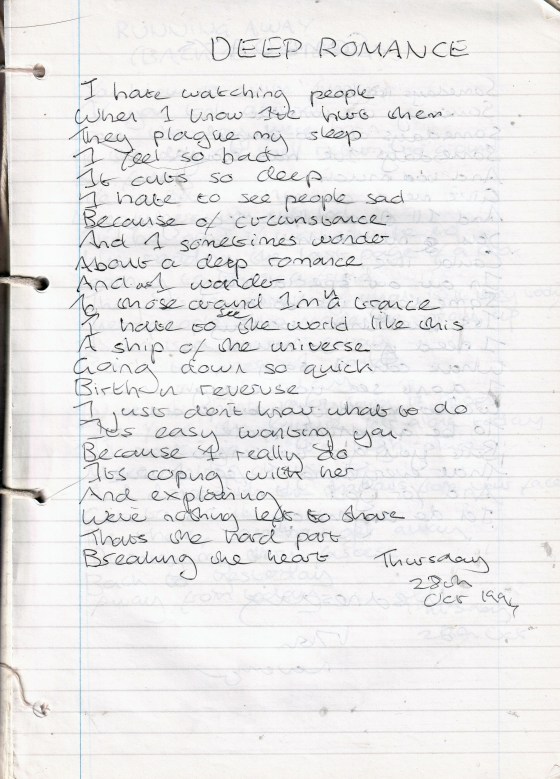 DEEP ROMANCE
I hate watching people
When I know I've hurt them
They plague my sleep
I feel so bad
It cuts so deep
I hate to see people sad
Because of circumstance
And I sometimes wonder
About a deep romance
And as I wander
To those around I'm in a trance
I hate to see the world like this
A ship of the universe
Going down so quick
Birth in reveruse
I just don't know what to do
It's easy wanting you
Because I really do
Its coping with her
And explaining
We've nothing left to share
Thats the hard part
Breaking the heart
Thursday
28th
Oct 199